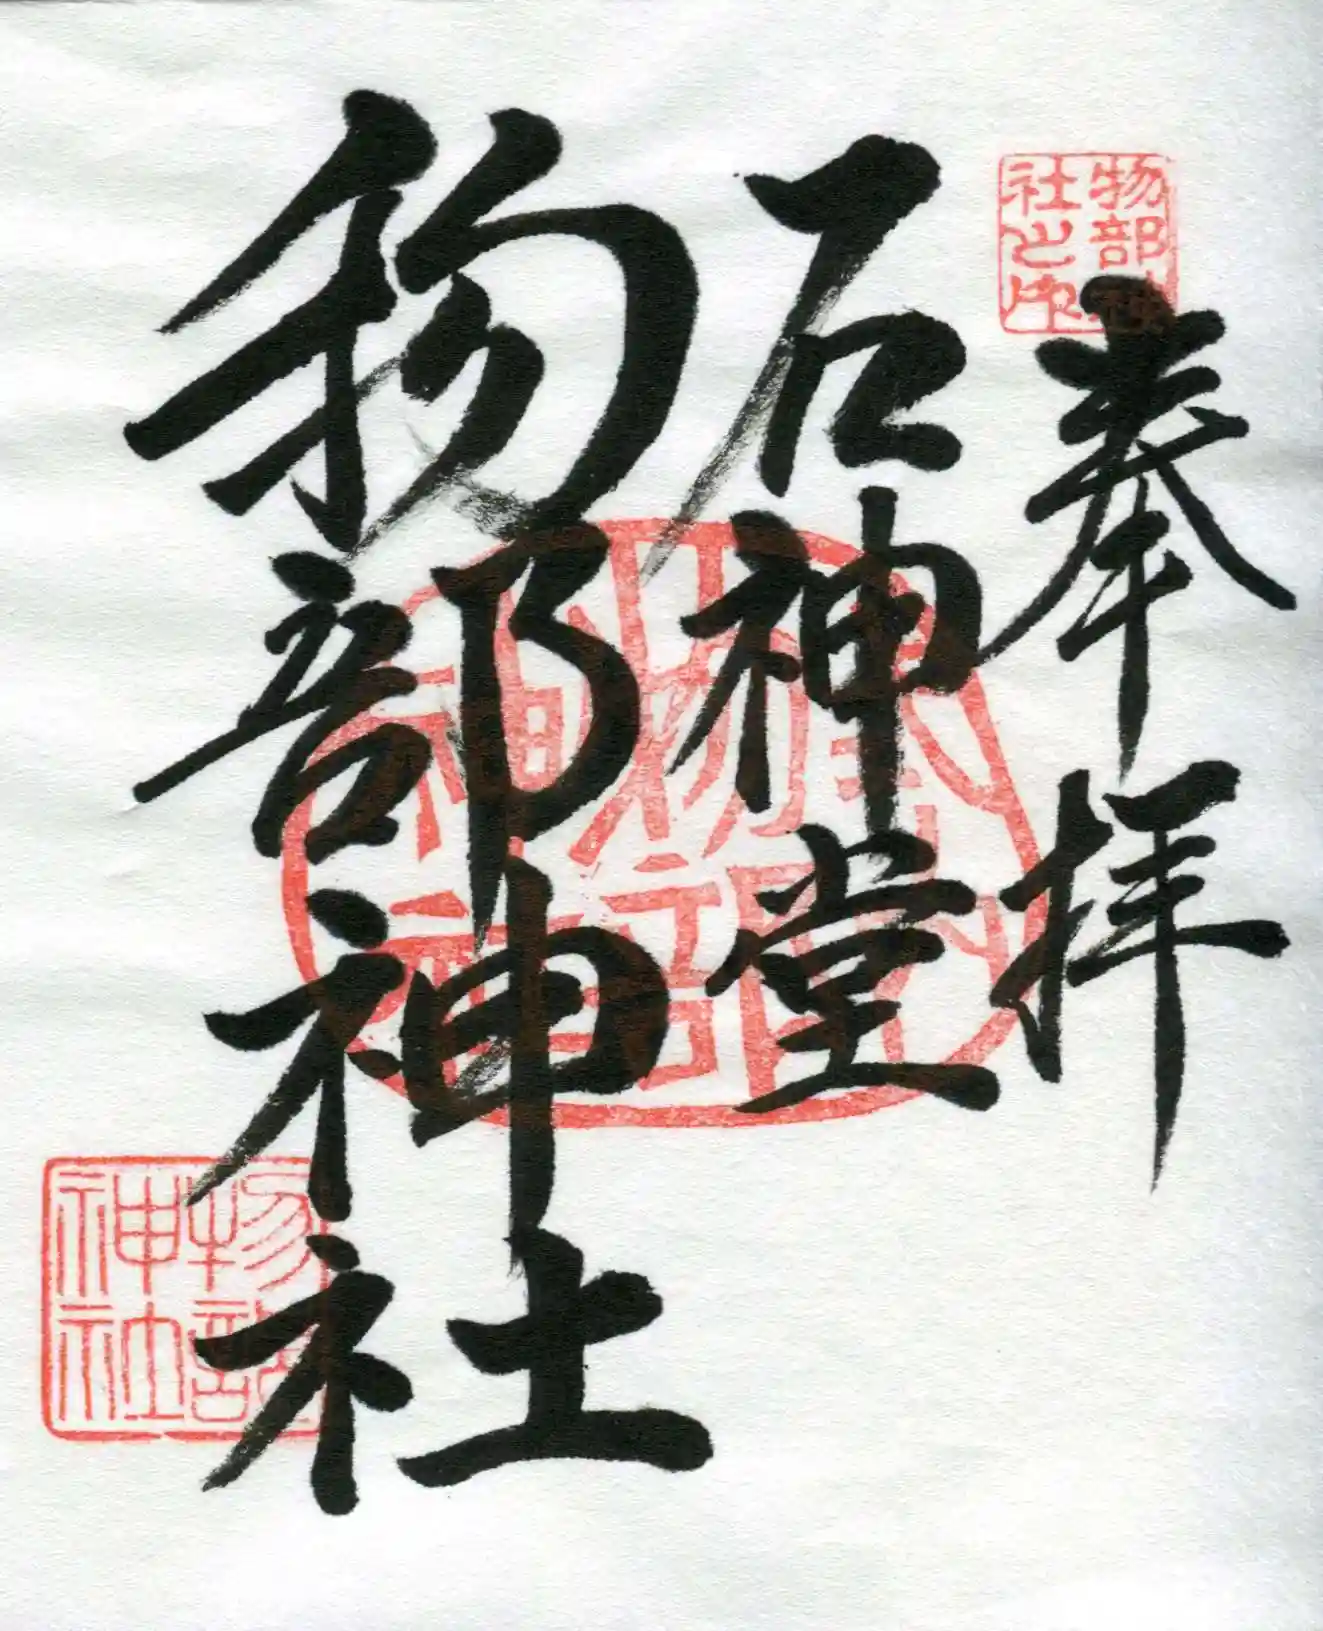 奉拝
石神堂
物部神社
物部神社之印
物部神社